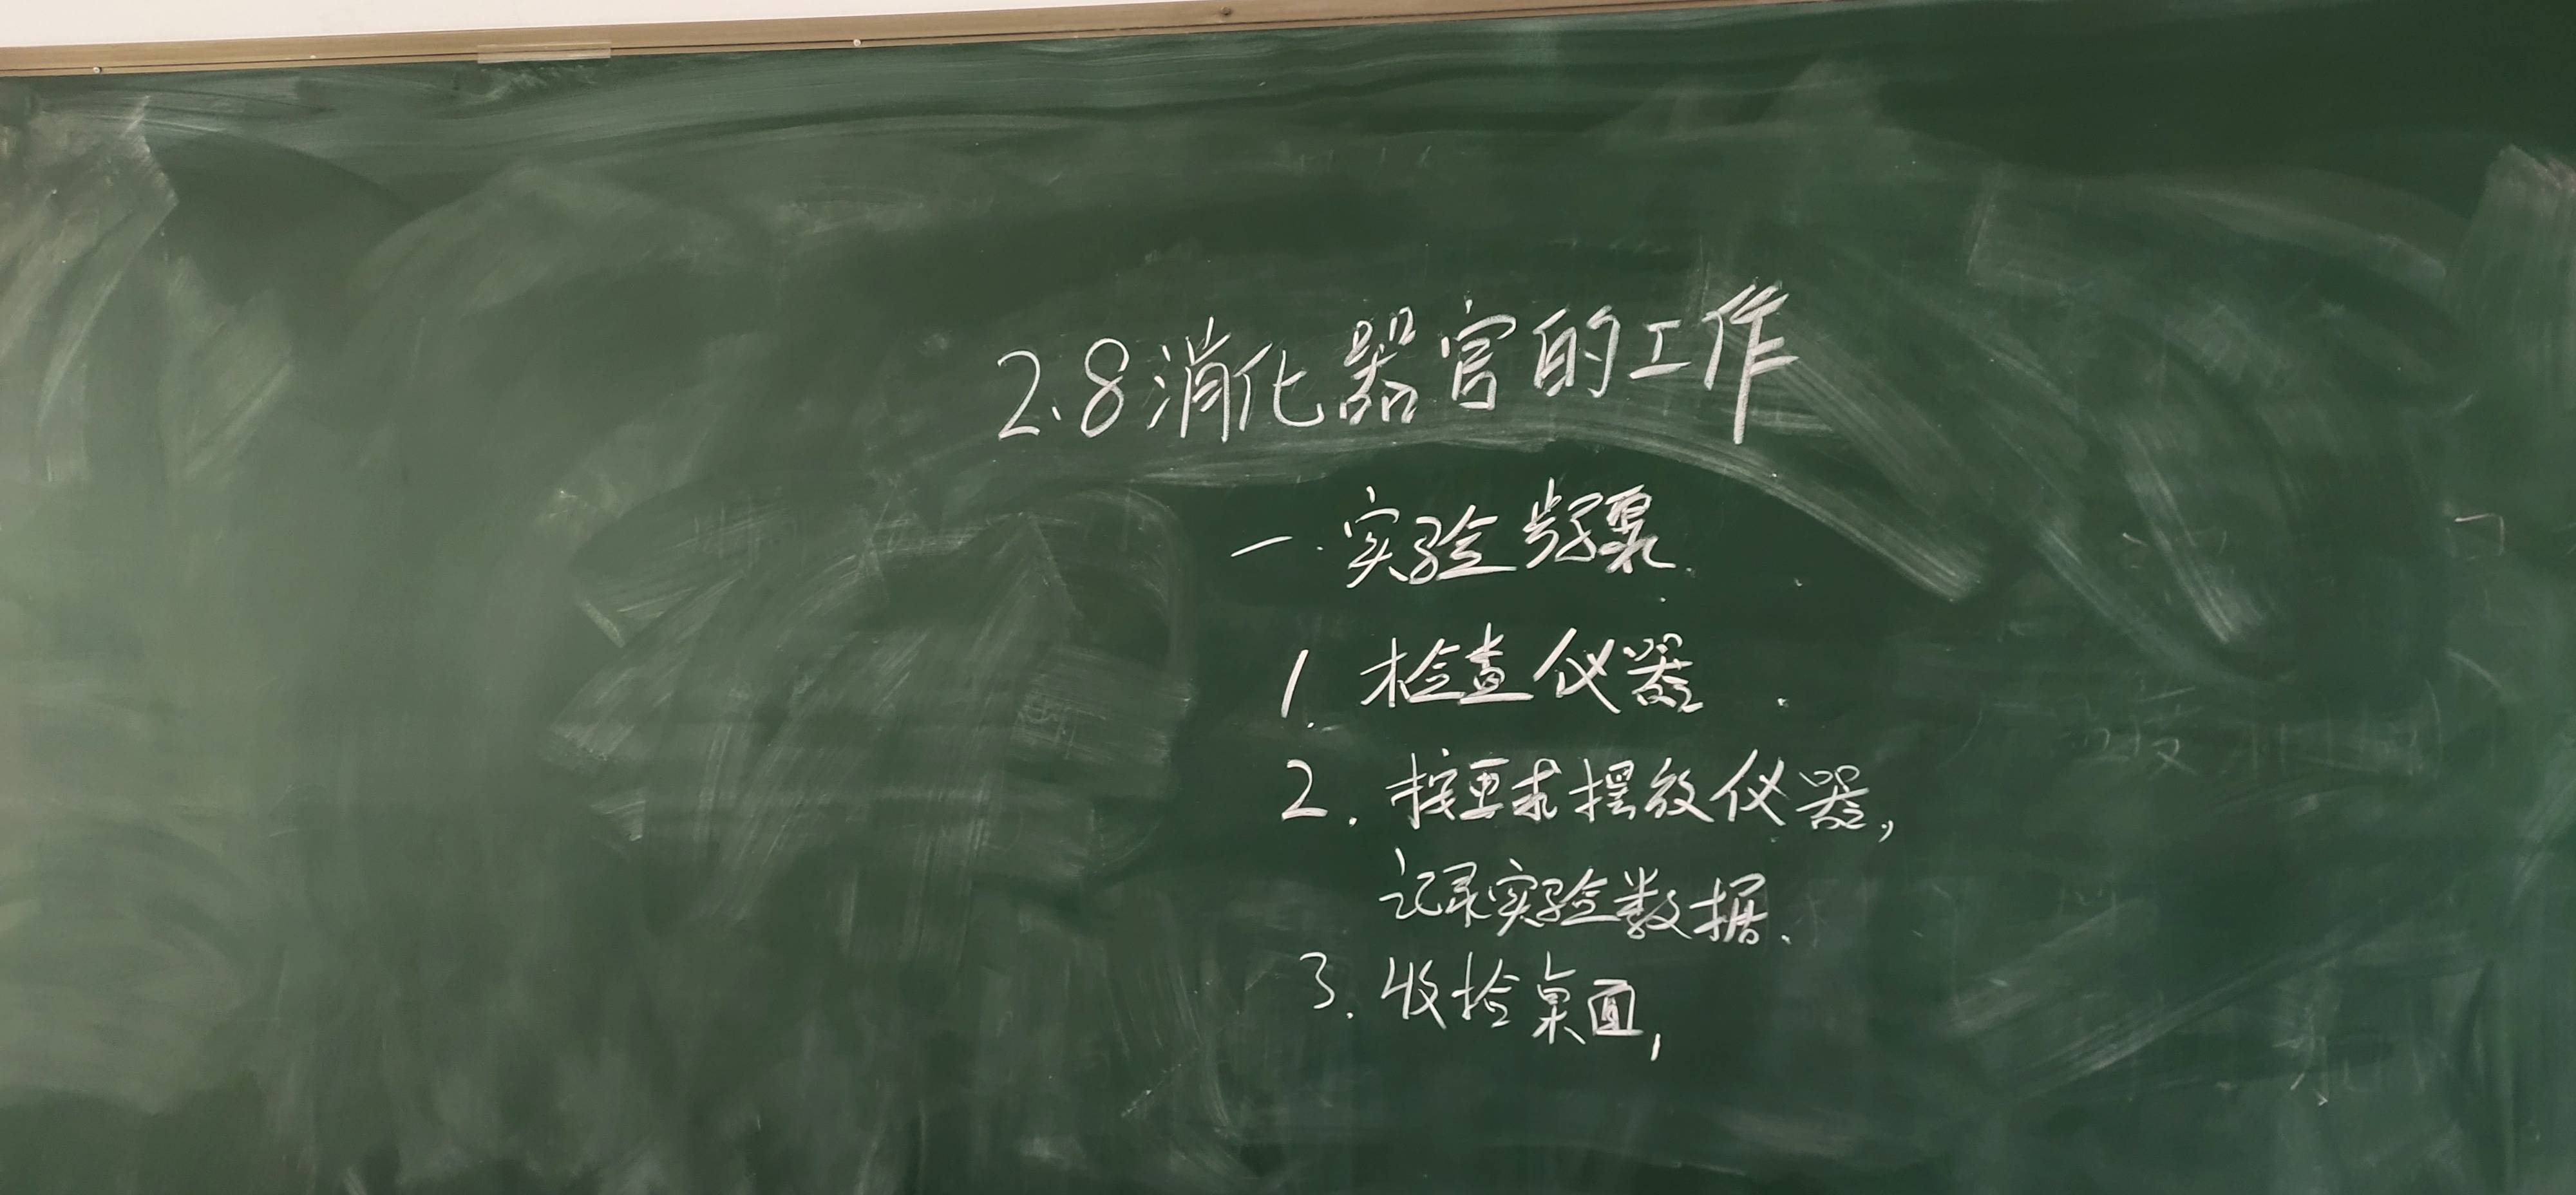 2.8消化器官的工作
一.实验步骤.
1.检查仪器.
2.按要求摆放仪器,
记录实验数据.
3.收捡桌面,